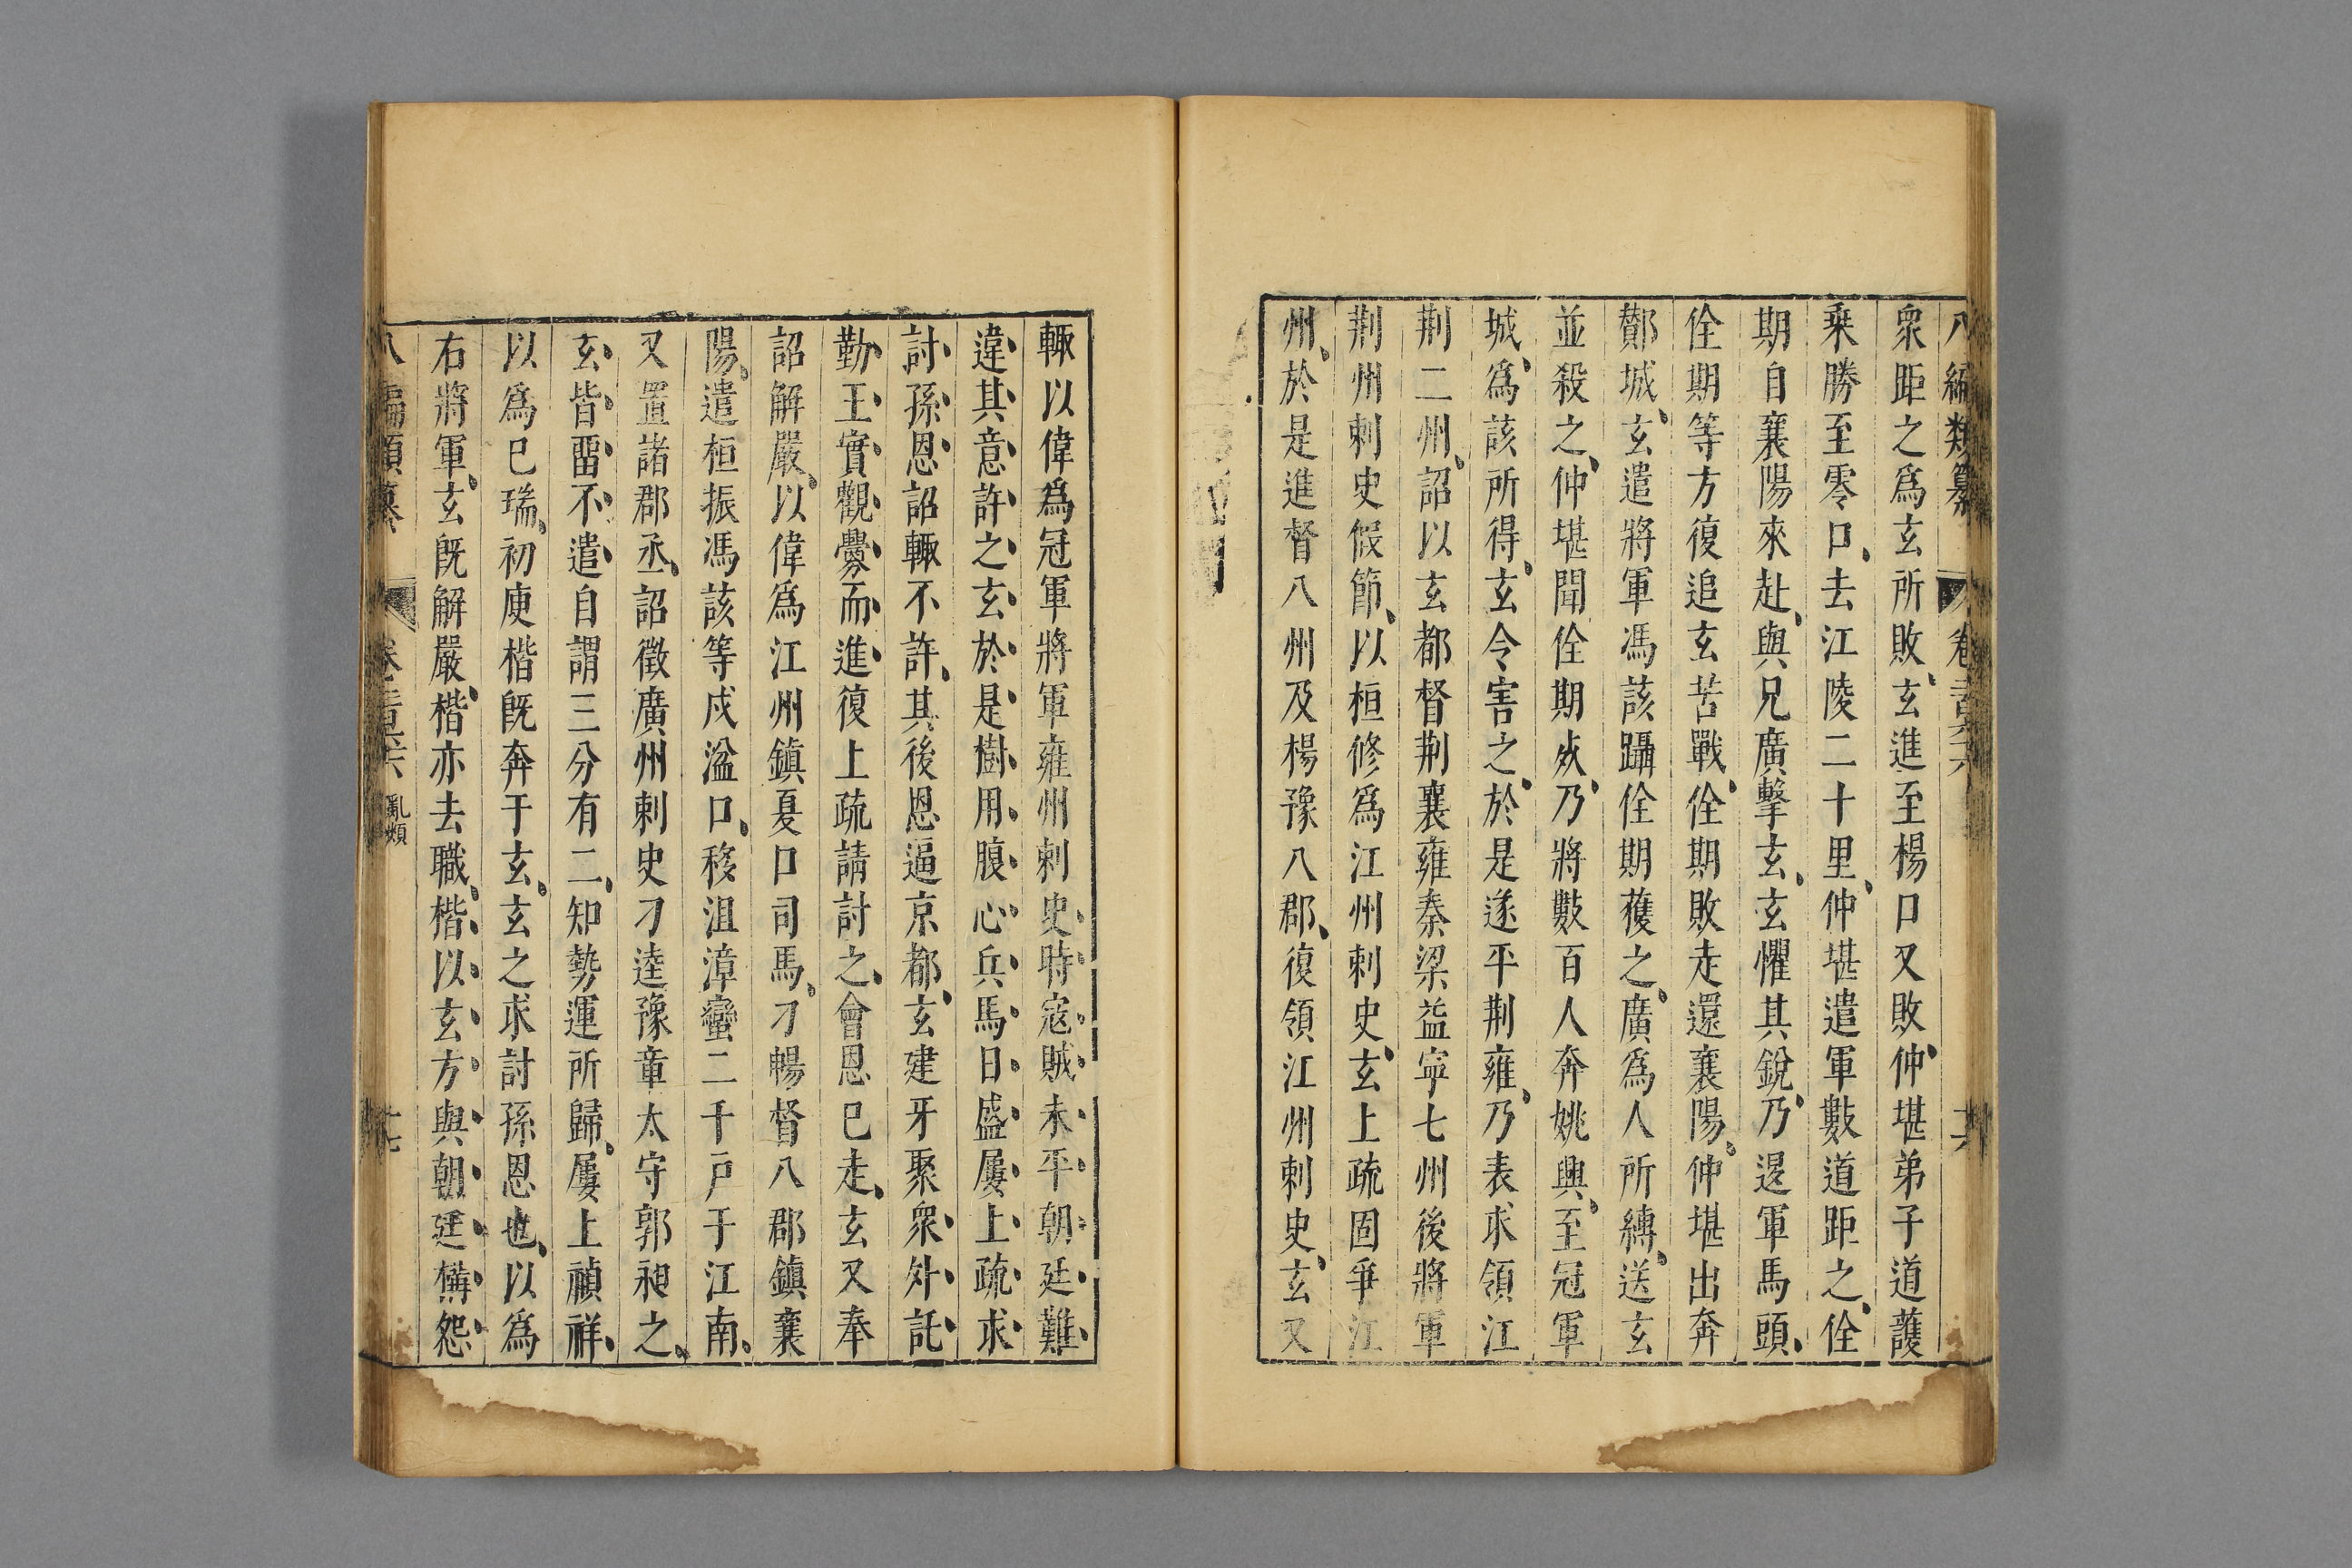 八編類纂 卷 六
衆距之爲玄所敗玄進至楊口又敗仲堪弟子道護
乗勝至零口去江陵二十里仲堪遣軍數道距之佺
期自襄陽來赴與兄廣擊玄玄懼其銳乃退軍馬頭
佺期等方復追玄苦戰佺期敗走還襄陽仲堪出奔
酇城玄遣將軍馮該躡佺期獲之廣爲人所縛送玄
並殺之仲堪聞佺期死乃將數百人奔姚興至冠軍
城爲該所得玄令害之於是遂平荆雍乃表求領江
荆二州詔以玄都督荆襄雍秦梁益寧七州後將軍
荆州刺史假節以桓修爲江州刺史玄上疏固爭江
州於是進督八州及楊豫八郡復領江州刺史玄又
輙以偉爲冠軍將軍雍州刺史時宼賊未平朝廷難
違其意許之玄於是樹用腹心兵馬日盛屢上疏求
討孫恩詔輙不許其後恩逼京都玄建牙聚衆外託
勤王實觀釁而進復上疏請討之會恩巳走玄又奉
詔解嚴以偉爲江州鎮夏口司馬刁暢督八郡鎮襄
陽遣桓振馮該等戍湓口移沮漳蠻二千戸于江南
又置諸郡丞詔徵廣州刺史刁逵豫章太守郭昶之
玄皆畱不遣自謂三分有二知勢運所歸屢上禎祥
以爲巳瑞初庾楷旣奔于玄玄之求討孫恩也以爲
右將軍玄旣解嚴楷亦去職楷以玄方與朝廷構怨
八編類纂 卷 六 亂類 十七